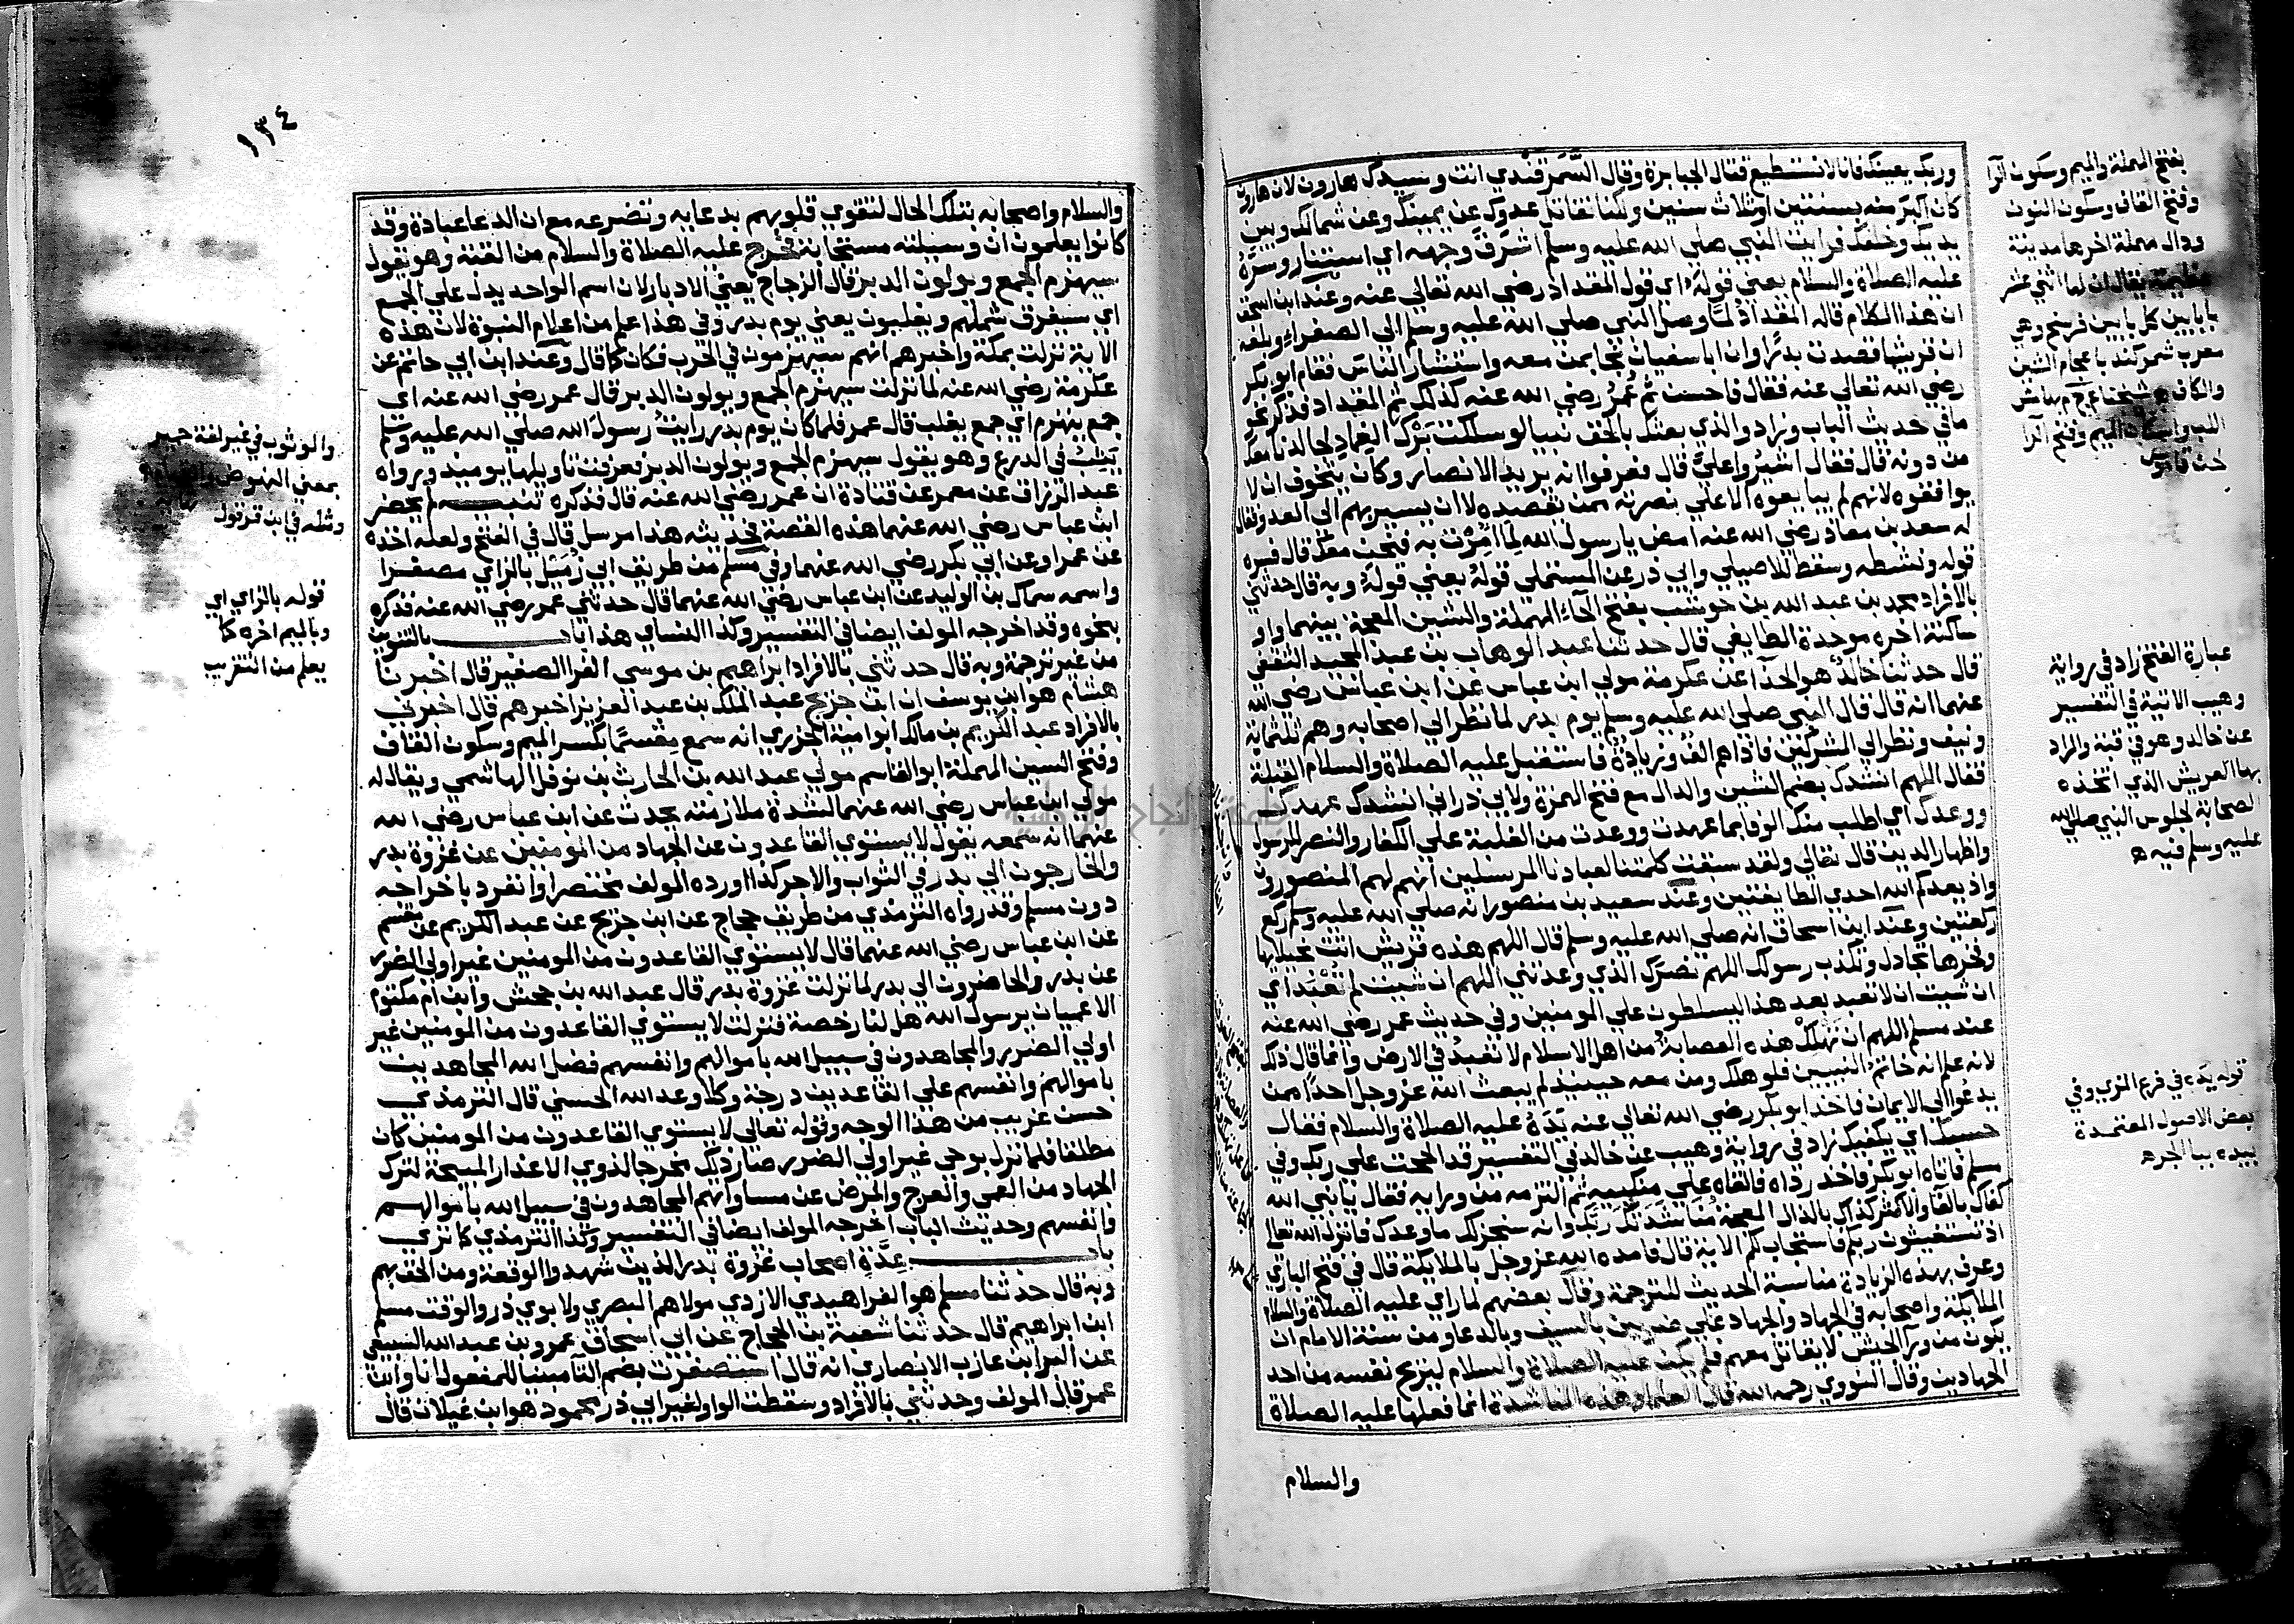 وربك يعينك فانا لا نستطيع قتال الجبابرة وقال السَّمَرقَندي انت وسيدك هارون لان هارون
كان اكبر منه بسنتين او ثلاث سنين ولكنا نقاتل عدوك عن يمينك وعن شمالك وبين
يديك وخلفك فرايت النبي صلي الله عليه وسلم اشرق وجهه اي استنار وسره
عليه الصلاة والسلام يعني قوله اي قول المقداد رضي الله تعالي عنه وعند ابن اسحق
ان هذا الكلام قاله المقداد لما وصل النبي صلي الله عليه وسلم الي الصفراء وبلغه
ان قريشا قصدت بدرا وان ابا سفيان نجا بمن معه واستشار الناس فقام ابو بكر
رضي الله تعالي عنه فقال فاحسن ثم عُمرُ رضي الله عنه كذلك ثم المقداد فذكر نحو
ما في حديث الباب وزاد والذي بعثك بالحق نبيا لو سلكت بَرْك الغِماد لجالدنا معك
من دونه قال فقال اشيروا عليَّ قال فعرفوا انه يريد الانصار وكان يتخوف ان لا
يوافقوه لانهم لم يبايعوه الا علي نصرته ممن نقصده لا ان يسير بهم الي العدو فقال
له سعد بن معاذ رضي الله عنه امض يا رسول الله لِمَا اُمِرْت به فنحن معك قال فسره
قوله ونشطه وسقط للاصيلي وابي ذر عن المستملي قوله يعني قولهُ وبه قال حدثني
بالافراد محمد بن عبد الله بن حوشب بفتح الحاء المهملة والشين المعجمة بينهما واو
ساكنة اخره موحدة الطايفي قال حدثنا عبد الوهاب بن عبد المجيد الثقفي
قال حدثنا خالدٌ هو الحذآ عن عكرمة مولي ابن عباس عن ابن عباس رضي الله
عنهما انه قال قال النبي صلي الله عليه وسلم يوم بدر لما نظر الي اصحابه وهم ثلثماية
ونيف ونظر الي المشركين فاذا هم الف وزيادة فاستقبل عليه الصلاة والسلام القبلة
فقال اللهم انشدك بضم الشين والدال مع فتح الهمزة ولابي ذر اني انشدك عهدك
ووعدك اي اطلب منك الوفا بما عهدت ووعدت من الغلبة علي الكفار والنصر للرسول
واظهار الدين قال تعالي ولقد سبقت كلمتنا لعبادنا المرسلين انهم لهم المنصورون
واذ يعدكم الله احدي الطايفتين وعند سعيد بن منصور انه صلي الله عليه وسلم ركع
ركعتين وعند ابن اسحاق انه صلي الله عليه وسلم قال اللهم هذه قريش اتت بخيلايها
وفخرها تجادل وتكذب رسولك اللهم نصرك الذي وعدتني اللهم ان شيت لم تُعْبَد اي
ان شيت ان لا تعبد بعد هذا يسلطون علي المومنين وفي حديث عمر رضي الله عنه
عند مسلم اللهم ان تَهلِك هذه العصابة من اهل الاسلام لا تعبدُ في الارض وانما قال ذلك
لانه علم انه خاتم النبيين فلو هلك ومن معه حينيذ لم يبعث الله عز وجل احدا ممن
يدعوا الي الايمان فاخذ ابو بكر رضي الله تعالي عنه يَدَهُ عليه الصلاة والسلام فقال
حسبك اي يكفيك زاد في رواية وهيب عن خالد في التفسير قد الححت علي ربك وفي
مسلم فاتاه ابو بكر فاخذ رداه فالقاه علي منكبيه ثم التزمه من ورايه فقال يا نبي الله
كفاك بالفا والاكثر كذاك بالذال المعجمة مُنَاشدَتُكَ رَبَّك وانه سنجز لك ما وعدك فانزل الله تعالي
اذ تستغيثون ربكم فاستجاب لكم الاية قال فامده الله عز وجل بالملايكة قال في فتح الباري
وعرف بهذه الزيادة مناسبة الحديث للترجمة وقال بعضهم لما راي عليه الصلاة والسلام
الملايكة واصحابه في الجهاد والجهاد علي ضربين بالسيف وبالدعا ومن سنة الامام ان
يكون من ورآ الجيش لا يقاتل معهم فلم يكن عليه الصلاة والسلام ليريح نفسه من احد
الجهادين وقال النووي رحمه الله قال العلما وهذه المناشدة انما فعلها عليه الصلاة
والسلام
بفتح المهملة والميم وسكون الرا
وفتح القاف وسكون النون
ودال مهملة اخرها مدينة
عظيمة يقال ان لها اثني عشر
بابا بين كل بابين فرسخ وهي
معرب شمركند باعجام الشين
والكاف
عبارة الفتح زاد في رواية
وهيب الاتية في التفسير
عن خالد وهو في قبة والمراد
بها العريش الذي اتخذه
الصحابة لجلوس النبي صلي الله
عليه وسلم فيه ه
قوله يده في فرع المزي وفي
بعض الاصول المعتمدة
بيده ببا الجر ه
١٣٤
والسلام واصحابه بتلك الحال لتقوي قلوبهم بدعايه وتضرعه مع ان الدعا عبادة وقد
كانوا يعلمون ان وسيلته مستجابة فخرج عليه الصلاة والسلام من القبة وهو يقول
سيهزم الجمع ويولون الدبر قال الزجاج يعني الادبار لان اسم الواحد يدل علي الجمع
اي سيفرق شملهم ويغلبون يعني يوم بدر وفي هذا علم من اعلام النبوة لان هذه
الاية نزلت بمكة واخبرهم انهم سيهزمون في الحرب فكان كما قال وعند ابن ابي حاتم عن
عكرمة رضي الله عنه لما نزلت سيهزم الجمع ويولون الدبر قال عمر رضي الله عنه اي
جمع يهزم اي جمع يغلب قال عمر فلما كان يوم بدر رايت رسول الله صلي الله عليه وسلم
يثب في الدرع وهو يقول سيهزم الجمع ويولون الدبر فعرفت تاويلها يوميذ ورواه
عبد الرزاق عن معمر عن قتادة ان عمر رضي الله عنه قال فذكره تنبيه لم يحضر
ابن عباس رضي الله عنهما هذه القصة فحديثه هذا مرسل قال في الفتح ولعله اخذه
عن عمر او عن ابي بكر رضي الله عنهما وفي مسلم من طريق ابي زُمَيْل بالزاي مصغرا
واسمه سماك بن الوليد عن ابن عباس رضي الله عنهما قال حدثني عمر رضي الله عنه فذكره
بنحوه وقد اخرجه المولف ايضا في التفسير وكذا النساي هذا باب بالتنوين
من غير ترجمة وبه قال حدثني بالافراد ابراهيم بن موسي الفرا الصغير قال اخبرنا
هشام هو ابن يوسف ان ابن جريج عبد الملك بن عبد العزيز اخبرهم قال اخبرني
بالافراد عبد الكريم بن مالك ابو امية الجزري انه سمع مقسمًا بكسر الميم وسكون القاف
وفتح السين المهملة ابو القاسم مولي عبد الله بن الحارث بن نوفل الهاشمي ويقال له
مولي ابن عباس رضي الله عنهما لشدة ملازمته يحدث عن ابن عباس رضي الله
عنهما انه سمعه يقول لا يستوي القاعدون عن الجهاد من المومنين عن غزوة بدر
والخارجون الي بدر في الثواب والاجر كذا اورده المولف مختصرا وانفرد باخراجه
دون مسلم وقد رواه الترمذي من طريق حجاج عن ابن جريج عن عبد الكريم عن مقسم
عن ابن عباس رضي الله عنهما قال لا يستوي القاعدون من المومنين غير اولي الضرر
عن بدر والحاضرون الي بدر لما نزلت غزوة بدر قال عبد الله بن جحش وابن ام مكتوم
الاعميان يرسول الله هل لنا رخصة فنزلت لا يستوي القاعدون من المومنين غير
اولي الضرر والمجاهدون في سبيل الله باموالهم وانفسهم فضل الله المجاهدين
باموالهم وانفسهم علي القاعدين درجة وكلا وعد الله الحسني قال الترمذي
حسن غريب من هذا الوجه وقوله تعالي لا يستوي القاعدون من المومنين كان
مطلقا فلما نزل بوحي غير اولي الضرر صار ذلك مخرجا لذوي الاعذار المبيحة لترك
الجهاد من العمي والعرج والمرض عن مساواتهم المجاهدون في سبيل الله باموالهم
وانفسهم وحديث الباب اخرجه المولف ايضا في التفسير وكذا الترمذي كما تري
باب عِدَّةِ اصحاب غزوة بدر الذين شهدوا الوقعة ومن الحق بهم
وبه قال حدثنا مسلم هو الفراهيدي الازدي مولاهم البصري ولابوي ذر والوقت مسلم
ابن ابراهيم قال حدثنا شعبة بن الحجاج عن ابي اسحاق عمرو بن عبد الله السبيعي
عن البرا ابن عازب الانصاري انه قال استصغرت بضم التا مبنيا للمفعول انا وابن
عمر قال المولف وحدثني بالافراد وسقطت الواو لغير ابي ذر محمود هو ابن غيلان قال
والوثوب في غير لغة حمير
بمعني النهوض والقيام
ومثله في ابن قرقول
قوله بالزاي اي
وبالميم اخره كما
يعلم من التقريب
جامعة النجاح الوطنية